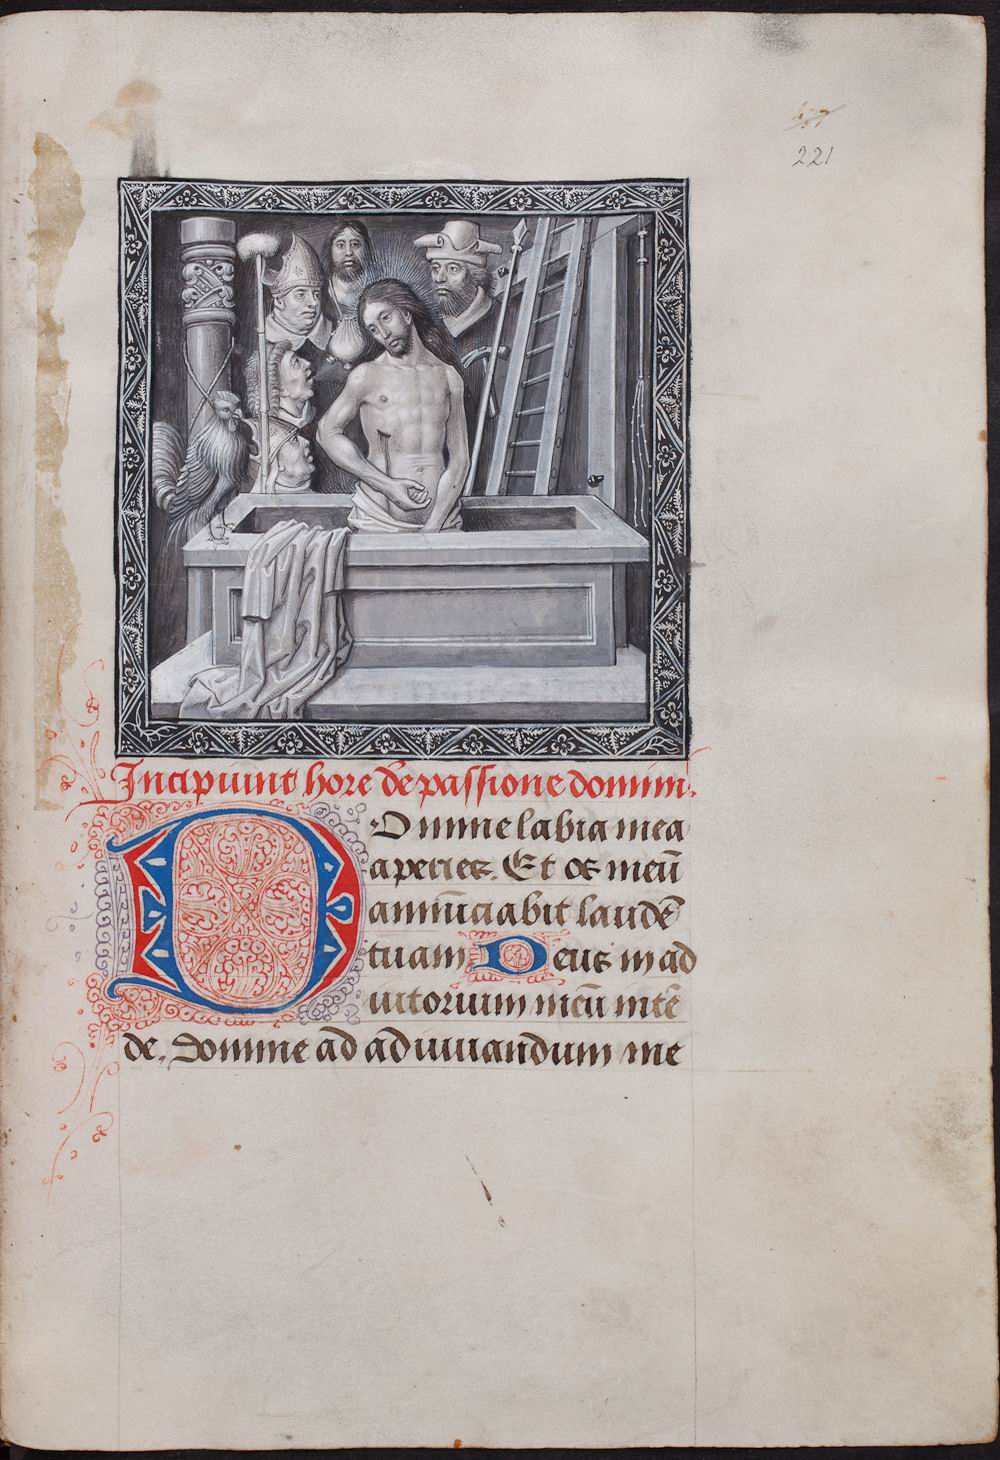 221
Incipiunt hore de passione domini.
Domine labia mea
aperies. Et os meū
annūciabit laudē
tuam Deus in ad
iutorium meū intē
de. Domine ad adiuuandum me